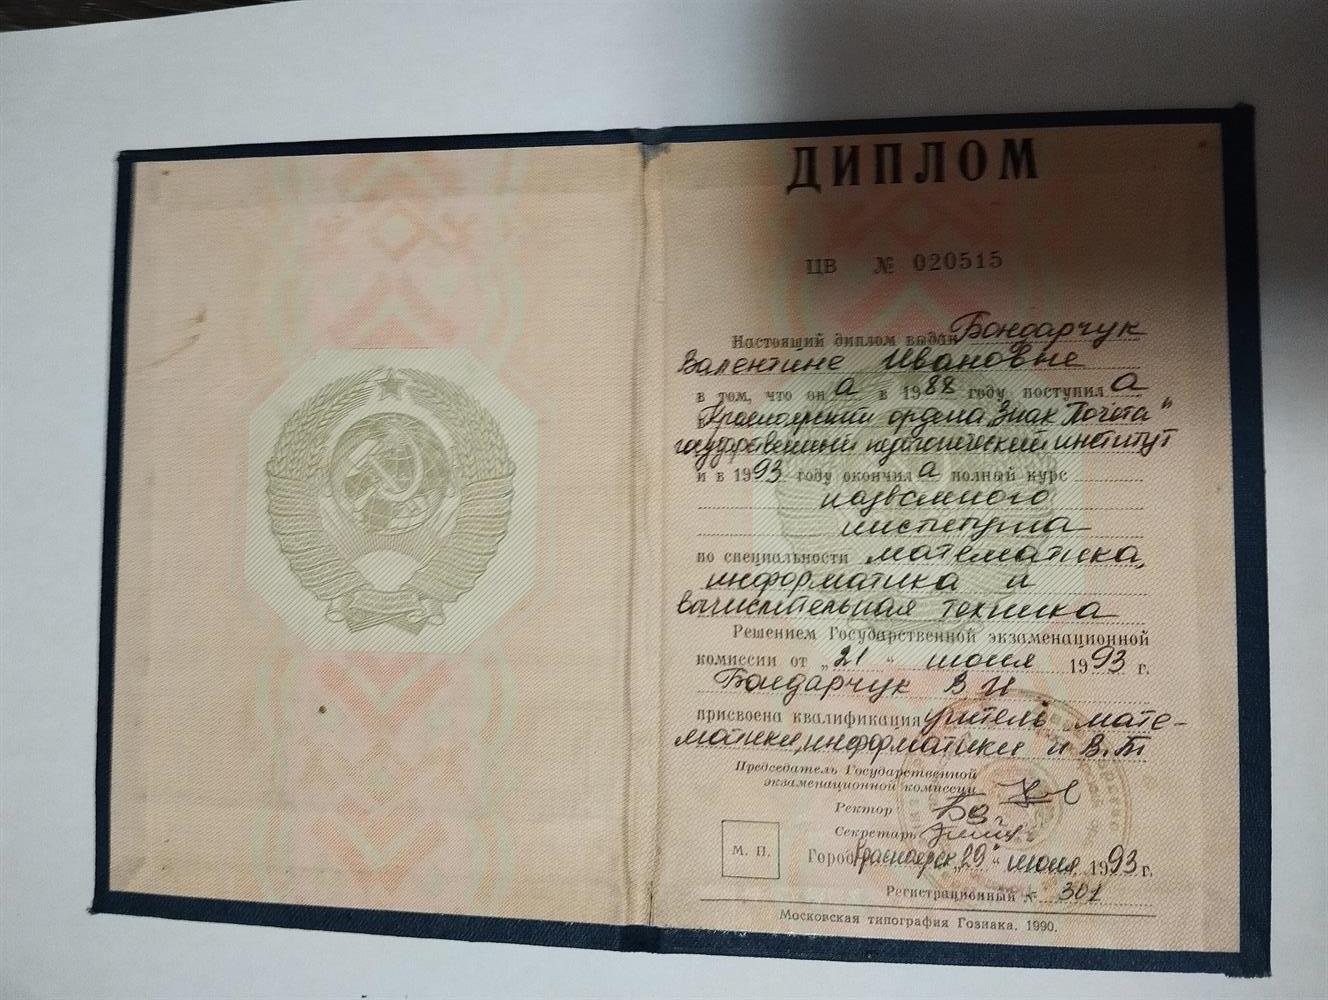 ДИПЛОМ
ЦВ № 020515
Настоящий диплом выдан Бондарчук
Валентине Ивановне
в том, что он а в 1988 году поступил а
в Красноярский ордена „Знак Почёта"
государственный педагогический институт
и в 1993 году окончил а полный курс
названного
института
по специальности математика,
информатика и
вычислительная техника
Решением Государственной экзаменационной
комиссии от „21" июня 1993 г.
Бондарчук В И
присвоена квалификация учитель мате-
матики, информатики и В.Т
Председатель Государственной
экзаменационной комиссии
Ректор
Секретарь
М. П.
Город Красноярск „29" июня 1993 г.
Регистрационный № 301
Московская типография Гознака. 1990.